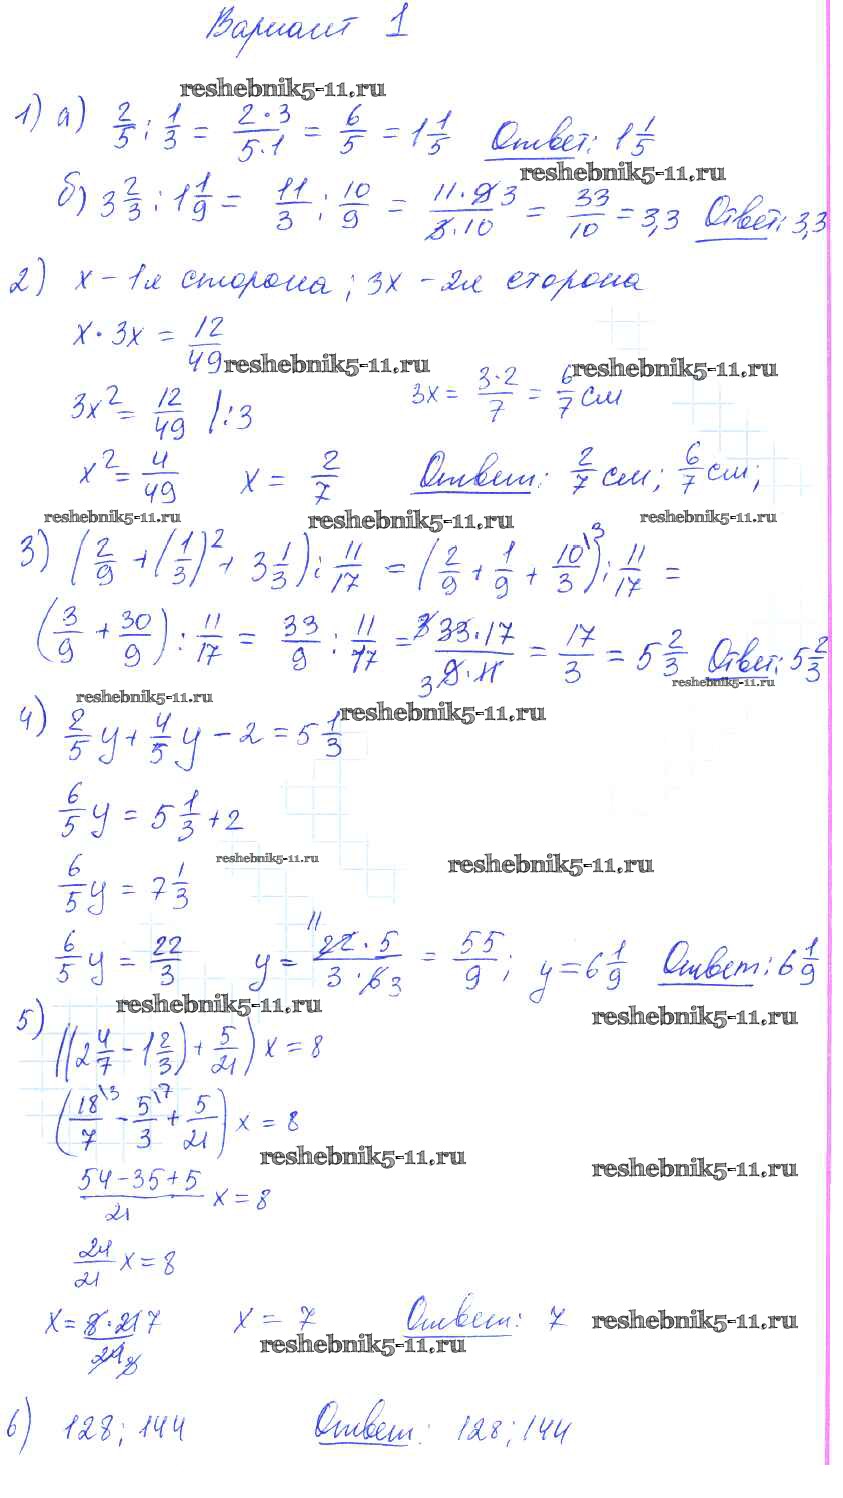 Вариант 1
reshebnik5-11.ru
1) а) 2/5 : 1/3 = 2·3/5·1 = 6/5 = 1 1/5 Ответ: 1 1/5
reshebnik5-11.ru
б) 3 2/3 : 1 1/9 = 11/3 : 10/9 = 11·9 3/3·10 = 33/10 = 3,3 Ответ: 3,3
2) x – 1я сторона; 3x – 2я сторона
x · 3x = 12/49
reshebnik5-11.ru reshebnik5-11.ru
3x² = 12/49 |:3 3x = 3·2/7 = 6/7 см
x² = 4/49 x = 2/7 Ответ: 2/7 см; 6/7 см;
reshebnik5-11.ru reshebnik5-11.ru reshebnik5-11.ru
3) (2/9 + (1/3)² + 3 1/3) : 11/17 = (2/9 + 1/9 + 10/3 \3) : 11/17 =
(3/9 + 30/9) : 11/17 = 33/9 : 11/17 = 3 33·17/3 9·11 = 17/3 = 5 2/3 Ответ: 5 2/3
reshebnik5-11.ru
reshebnik5-11.ru reshebnik5-11.ru
4) 2/5 y + 4/5 y – 2 = 5 1/3
6/5 y = 5 1/3 + 2
reshebnik5-11.ru reshebnik5-11.ru
6/5 y = 7 1/3
6/5 y = 22/3 y = 11 22·5/3·6 3 = 55/9; y = 6 1/9 Ответ: 6 1/9
reshebnik5-11.ru reshebnik5-11.ru
5) ((2 4/7 – 1 2/3) + 5/21) x = 8
(18/7 \3 – 5/3 \7 + 5/21) x = 8
reshebnik5-11.ru reshebnik5-11.ru
54–35+5/21 x = 8
24/21 x = 8
x = 8·21 7/24 8 x = 7 Ответ: 7
reshebnik5-11.ru reshebnik5-11.ru
6) 128; 144 Ответ: 128; 144